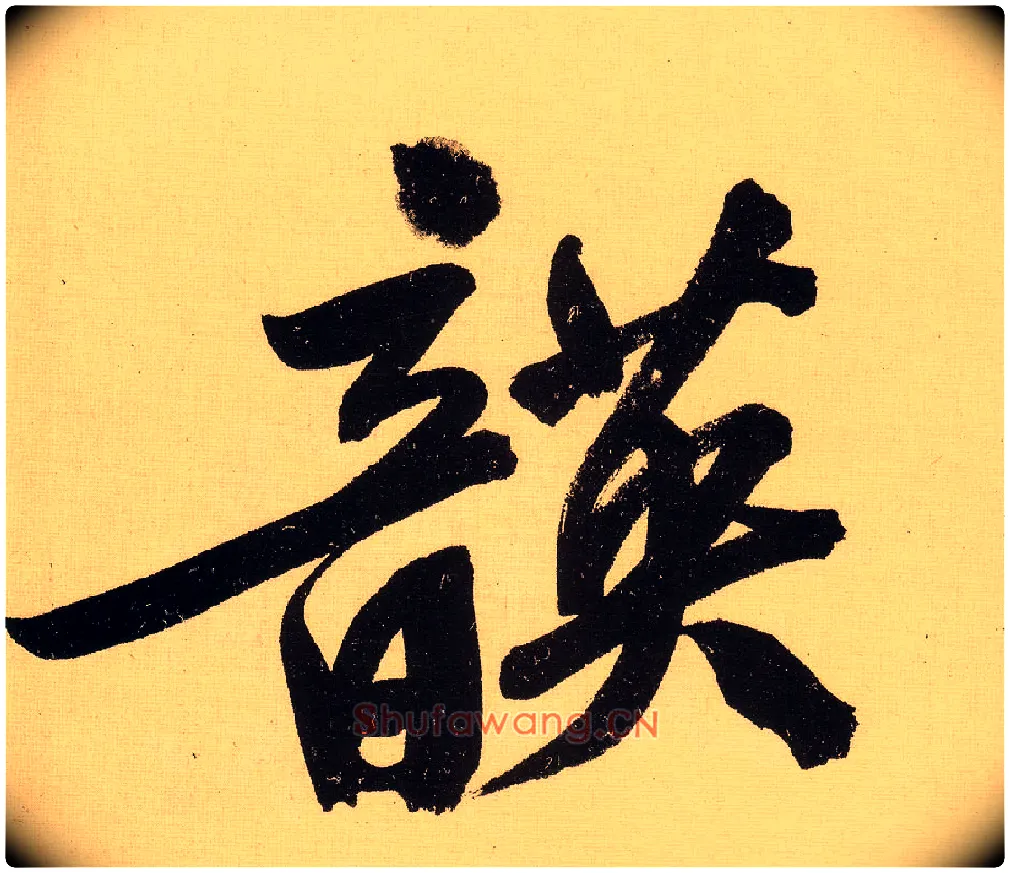 韺
Shufawang.CN